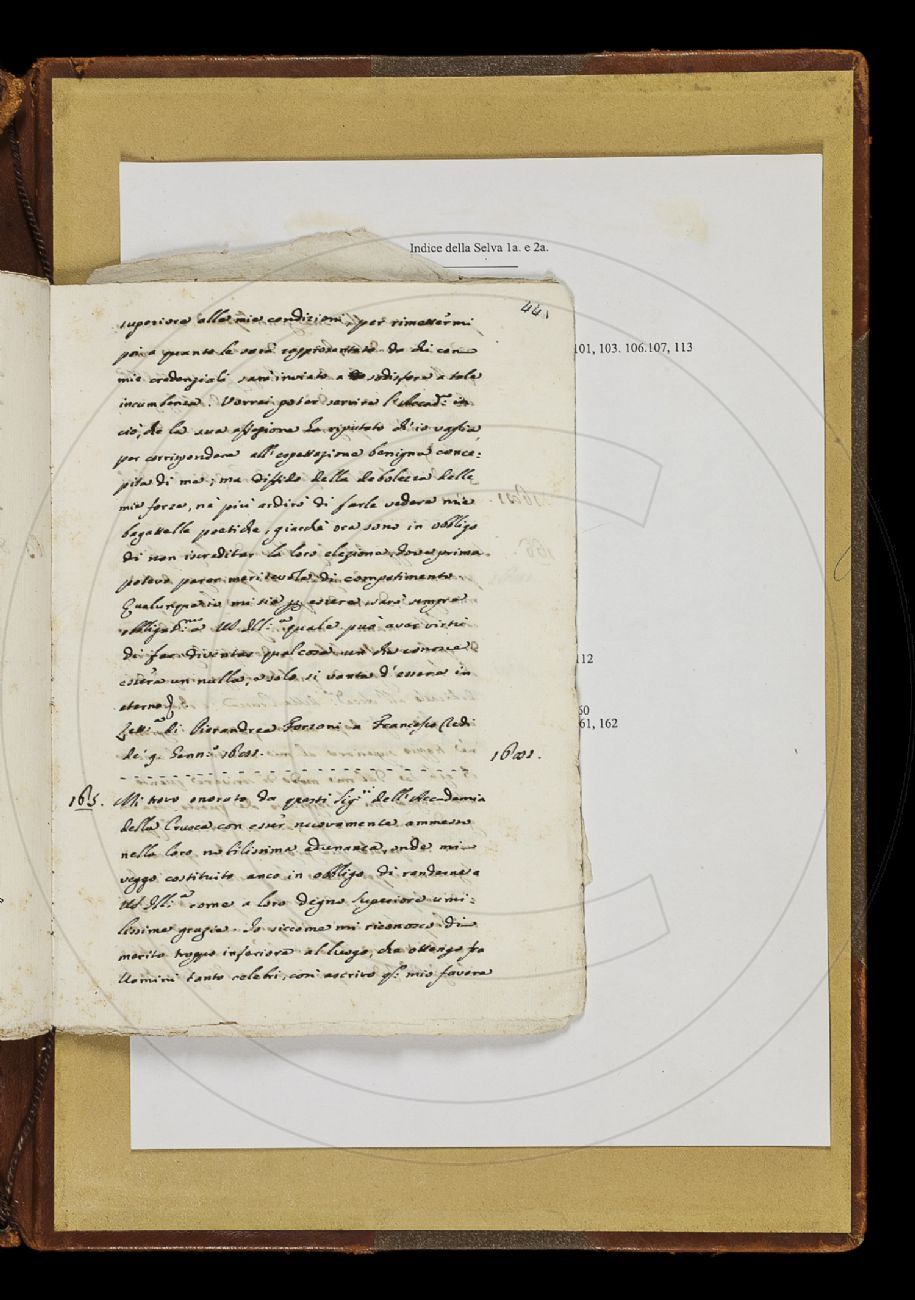 Indice della Selva 1a. e 2a.
44
101, 103. 106.107, 113
112
60
61, 162
superiore alle mie condizioni, per rimettermi
poi a quanto le sarà rappresentato da chi con
mie credenziali sarà inviato a sodisfare a tale
incumbenza. Vorrei poter servire l'Accad.ª in
ciò, che la sua affezione ha riputato ch'io vaglia
per corrispondere all'espettazione benigna conce=
pita di me; ma diffido della debolezza delle
mie forze, nè più ardirò di farle vedere mie
bagattelle poetiche, giacchè ora sono in obbligo
di non iscreditar la loro elezione, dove prima
potevo parer meritevole di compatimento.
Qualunque io mi sia per essere sarò sempre
obbligat.mo a VS Ill.ª quale può aver virtù
di far diventar qualcosa un che conosce
essere un nulla, e solo si vanta d'essere in
eterno
Lett.ª di Pierandrea Forzoni a Francesco Redi
de' 9. Genn.º 1681.
1681.
165. Mi trovo onorato da questi Sig.ri dell'Accademia
della Crusca con esser nuovamente ammesso
nella loro nobilissima adunanza, onde mi
veggo costituito anco in obbligo di renderne a
VS Ill.ª come a loro degno Superiore umi=
lissime grazie. Io siccome mi riconosco di
merito troppo inferiore al luogo, che ottengo fra
Uomini tanto celebri, così ascrivo q.º mio favore